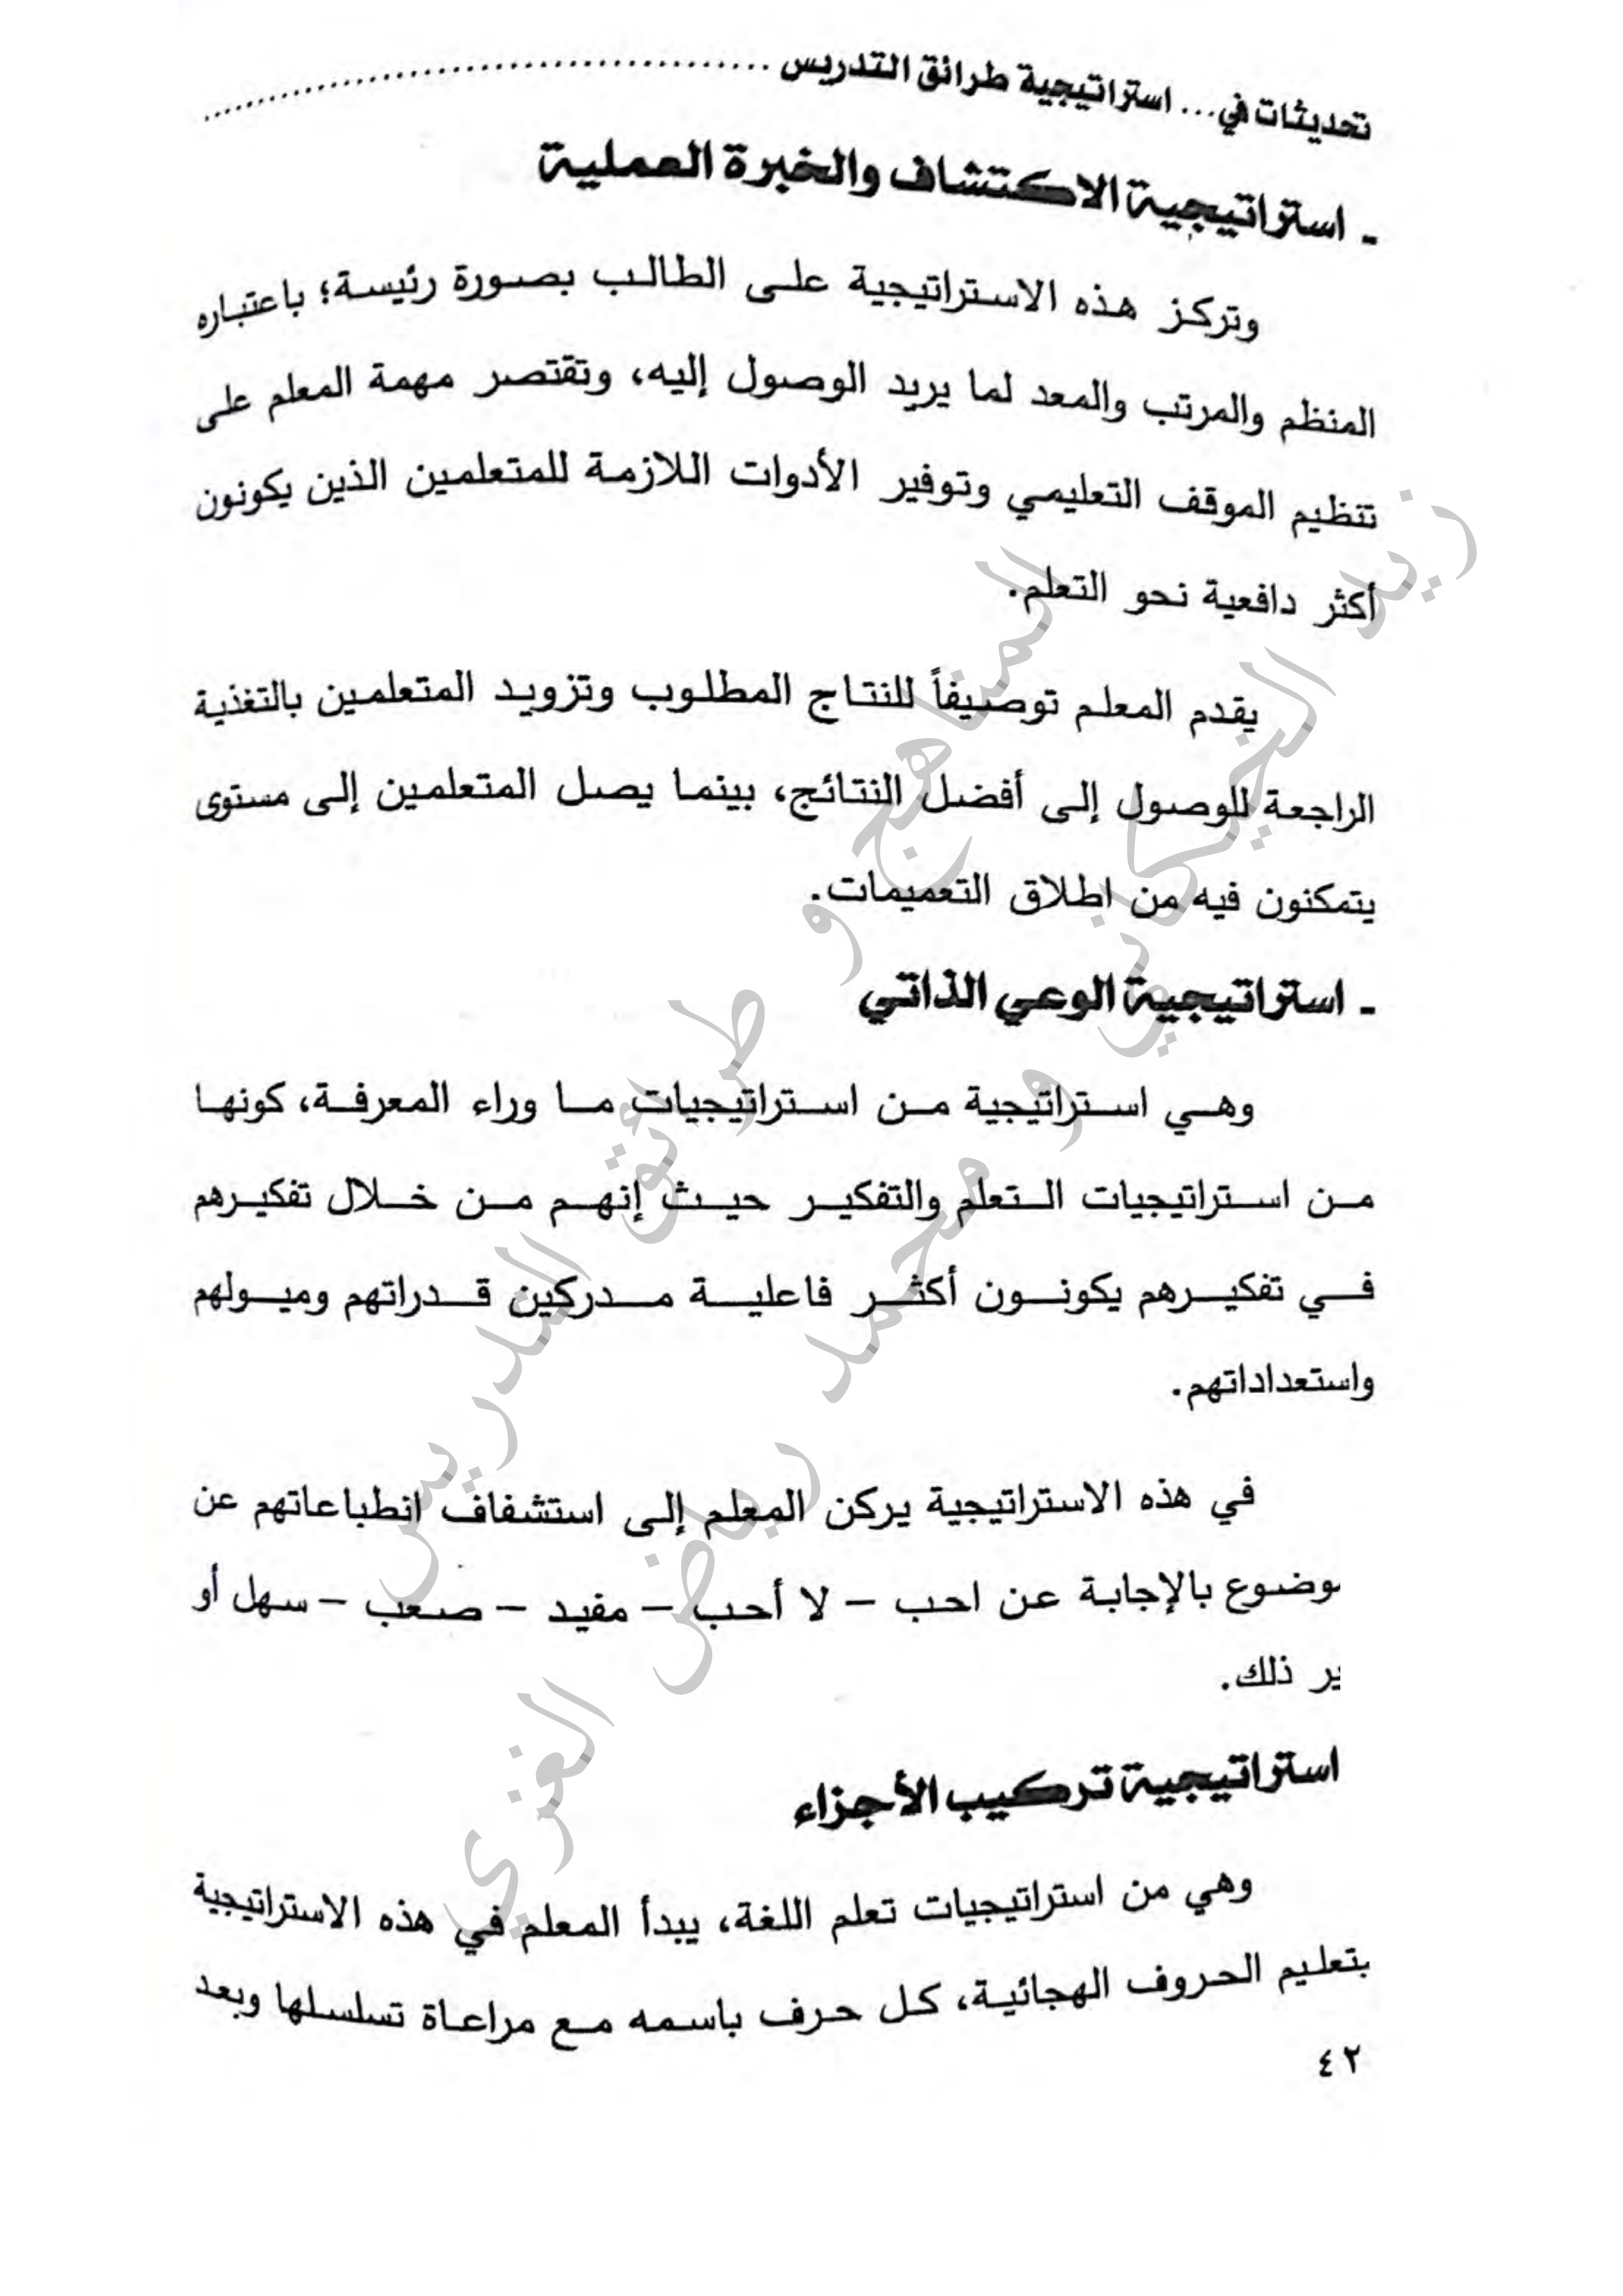 تحديثات في... استراتيجية طرائق التدريس ........................................
- استراتيجية الاكتشاف والخبرة العملية
وتركز هذه الاستراتيجية على الطالب بصورة رئيسة؛ باعتباره
المنظم والمرتب والمعد لما يريد الوصول إليه، وتقتصر مهمة المعلم على
تنظيم الموقف التعليمي وتوفير الأدوات اللازمة للمتعلمين الذين يكونون
أكثر دافعية نحو التعلم.
يقدم المعلم توصيفاً للنتاج المطلوب وتزويد المتعلمين بالتغذية
الراجعة للوصول إلى أفضل النتائج، بينما يصل المتعلمين إلى مستوى
يتمكنون فيه من اطلاق التعميمات.
- استراتيجية الوعي الذاتي
وهي استراتيجية من استراتيجيات ما وراء المعرفة، كونها
من استراتيجيات التعلم والتفكير حيث إنهم من خلال تفكيرهم
في تفكيرهم يكونون أكثر فاعلية مدركين قدراتهم وميولهم
واستعداداتهم.
في هذه الاستراتيجية يركن المعلم إلى استشفاف انطباعاتهم عن
موضوع بالإجابة عن احب – لا أحب – مفيد – صعب – سهل أو
ير ذلك.
استراتيجية تركيب الأجزاء
وهي من استراتيجيات تعلم اللغة، يبدأ المعلم في هذه الاستراتيجية
بتعليم الحروف الهجائية، كل حرف باسمه مع مراعاة تسلسلها وبعد
٤٢
المناهج و طرائق التدريس
زيد الخيكاني و محمد رياض الغزي